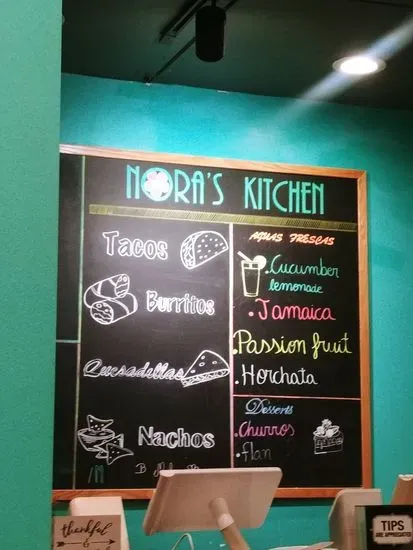 NORA'S KITCHEN
Tacos
Burritos
Quesadillas
Nachos
AGUAS FRESCAS
.Cucumber
lemonade
.Jamaica
.Passion fruit
.Horchata
Desserts
.Churros
.flan
thankful
TIPS
ARE APPRECIATED